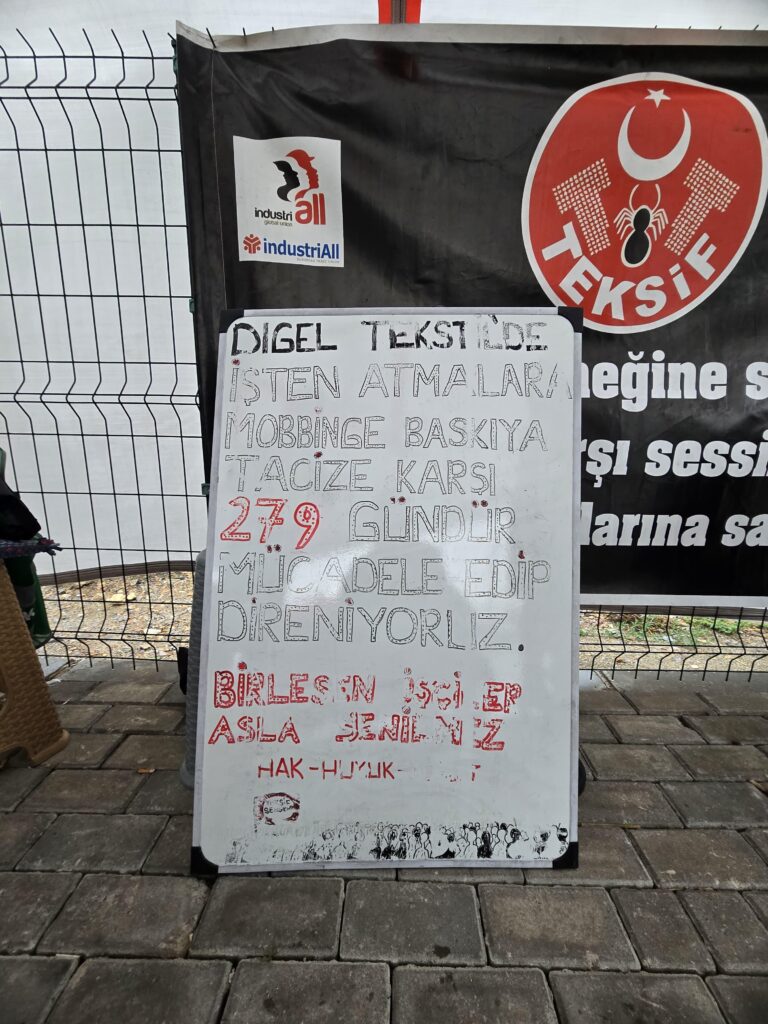 industri
all
global union
industriAll
TEKSİF
neğine s
rşı sessi
larına sa
DIGEL TEKSTİL'DE
İŞTEN ATMALARA
MOBBİNGE BASKIYA
TACİZE KARŞI
279 GÜNDÜR
MÜCADELE EDİP
DİRENİYORUZ.
BİRLEŞEN İŞÇİLER
ASLA YENİLMEZ
HAK-HUKUK-